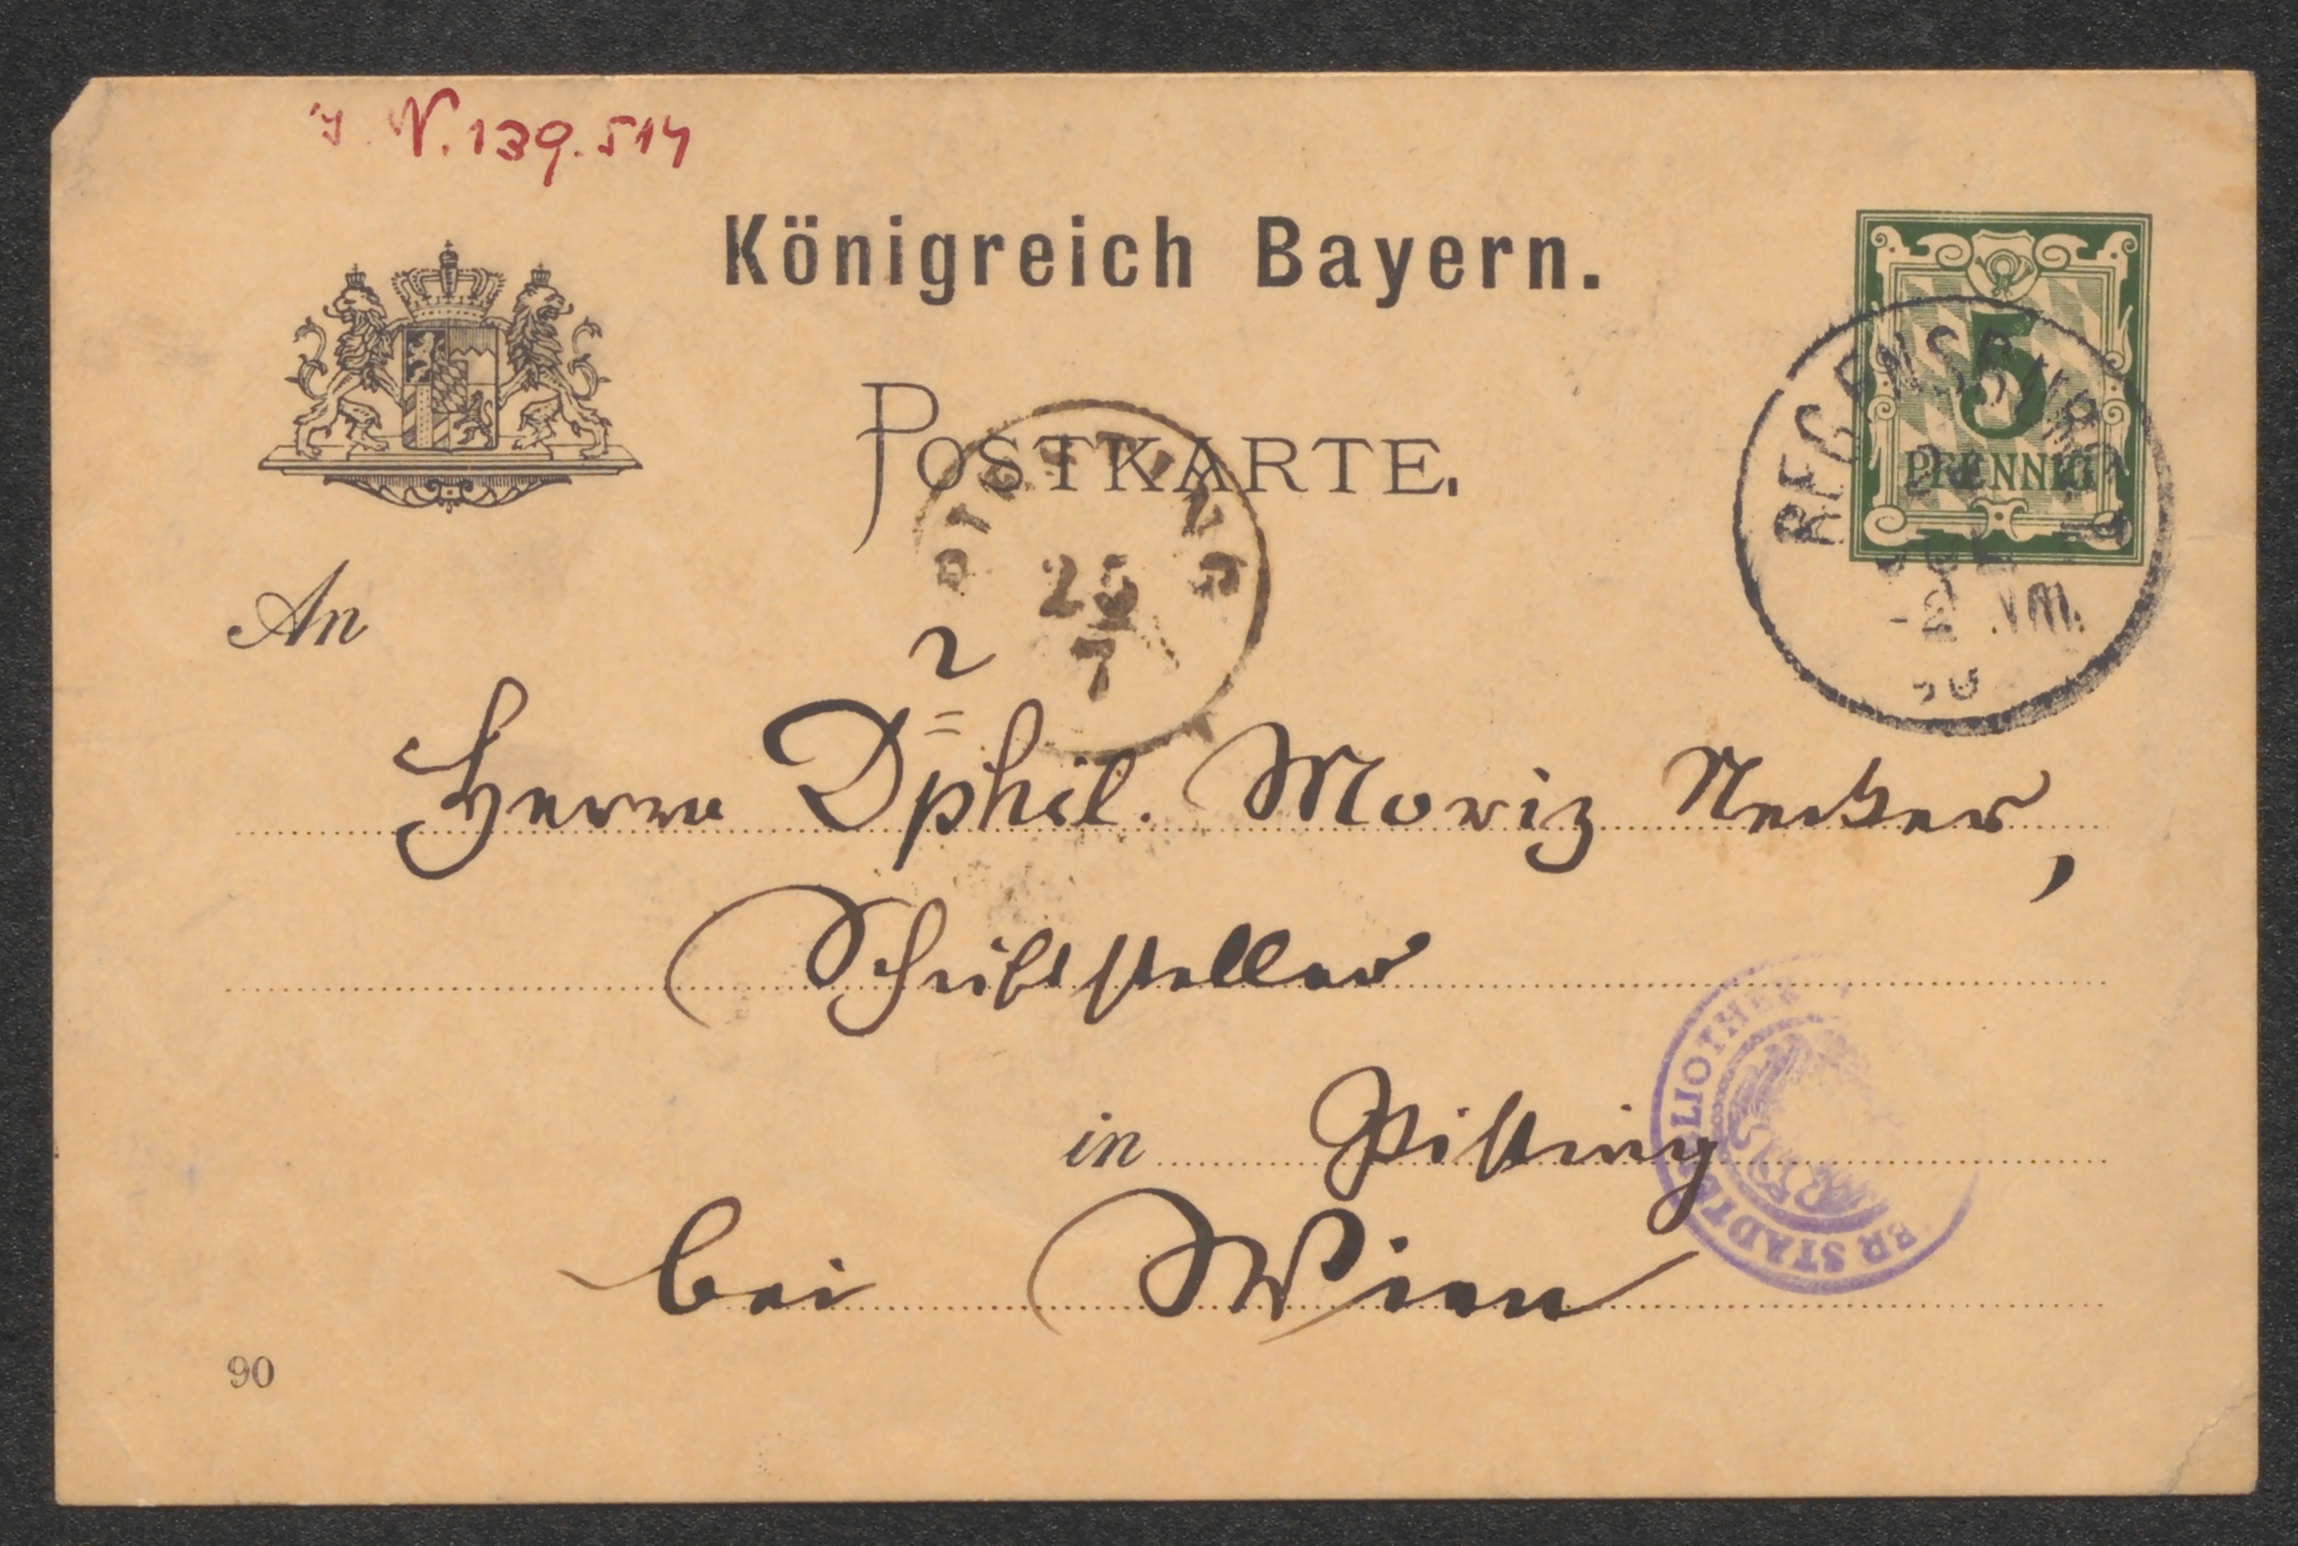 J. N. 139.514
Königreich Bayern.
5
PFENNIG
REGENSBURG
2 Nm.
POSTKARTE.
25
7
An
Herrn Dr phil. Moriz Necker,
Schriftsteller
in Pitting
bei Wien
90